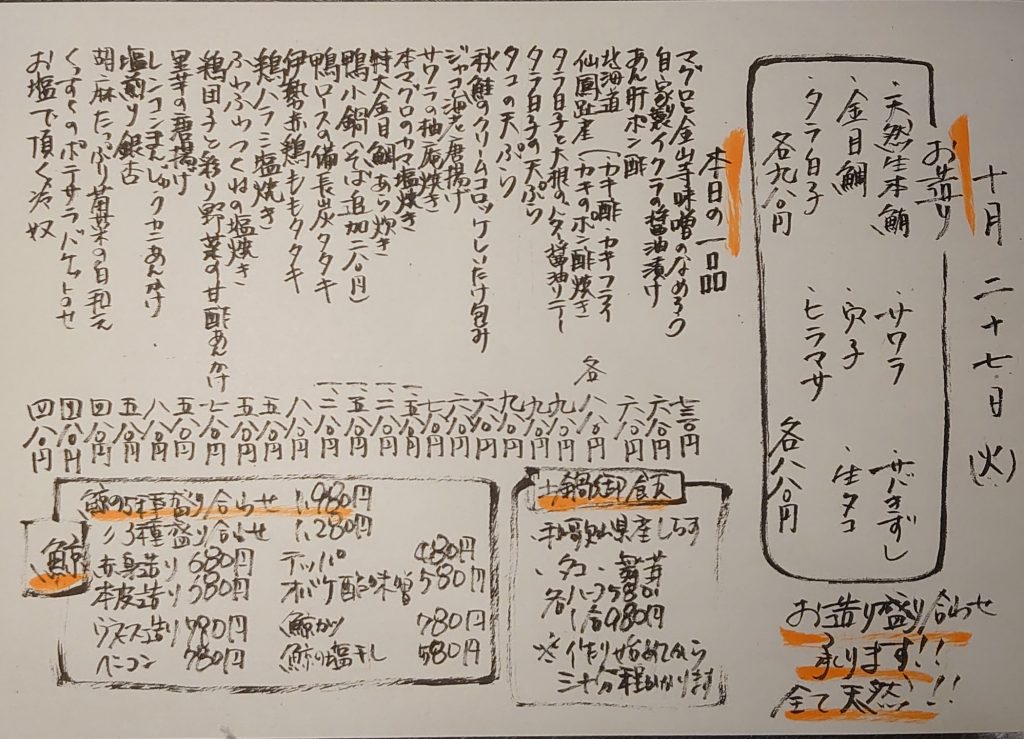 十月二十七日(火)
お造り
・天然生本鮪
・サワラ
・サバきずし
・金目鯛
・穴子
・生タコ
・タラ白子
・ヒラマサ
各九八〇円
各八八〇円
お造り盛り合わせ
承ります!!
全て天然!!
本日の一品
マグロと金山寺味噌のなめろう
自家製イクラの醤油漬け 六八〇円
あん肝ポン酢 六八〇円
北海道 (カキ酢・カキフライ
仙鳳趾産 (カキのポン酢焼き 各八八〇円
タラ白子と大根の人参醤油ソテー 九八〇円
タラ白子の天ぷら 九八〇円
タコの天ぷら 九八〇円
秋鮭のクリームコロッケしいたけ包み 六八〇円
ジャコ海老唐揚げ
サワラの柚庵焼き 七八〇円
本マグロのカマ塩焼き
特大金目鯛あら炊き
鴨小鍋(そば追加二八〇円)
鴨ロースの備長炭タタキ
伊勢赤鶏ももタタキ 八八〇円
鶏ハラミ塩焼き 五八〇円
ふわふわつくねの塩焼き 五八〇円
鶏団子と彩り野菜の甘酢あんかけ 七八〇円
里芋の唐揚げ 五八〇円
レンコンまんじゅうカニあんかけ 八八〇円
塩煎り銀杏 五八〇円
胡麻たっぷり菊菜の白和え 四八〇円
くんすくのポテサラバケットのせ 四八〇円
お塩で頂く冷奴 四八〇円
土鍋御飯
和歌山県産しらす
・タコ ・舞茸
各ハーフ580円
1合980円
※作り始めてから
三十分程かかります
鯨
鯨の5種盛り合わせ 1,980円
〃3種盛り合わせ 1,280円
赤身造り 680円
テッパ 480円
本皮造り 580円
オバケ酢味噌 580円
ウネス造り 780円
鯨かつ 780円
ベーコン 780円
鯨の塩干し 580円